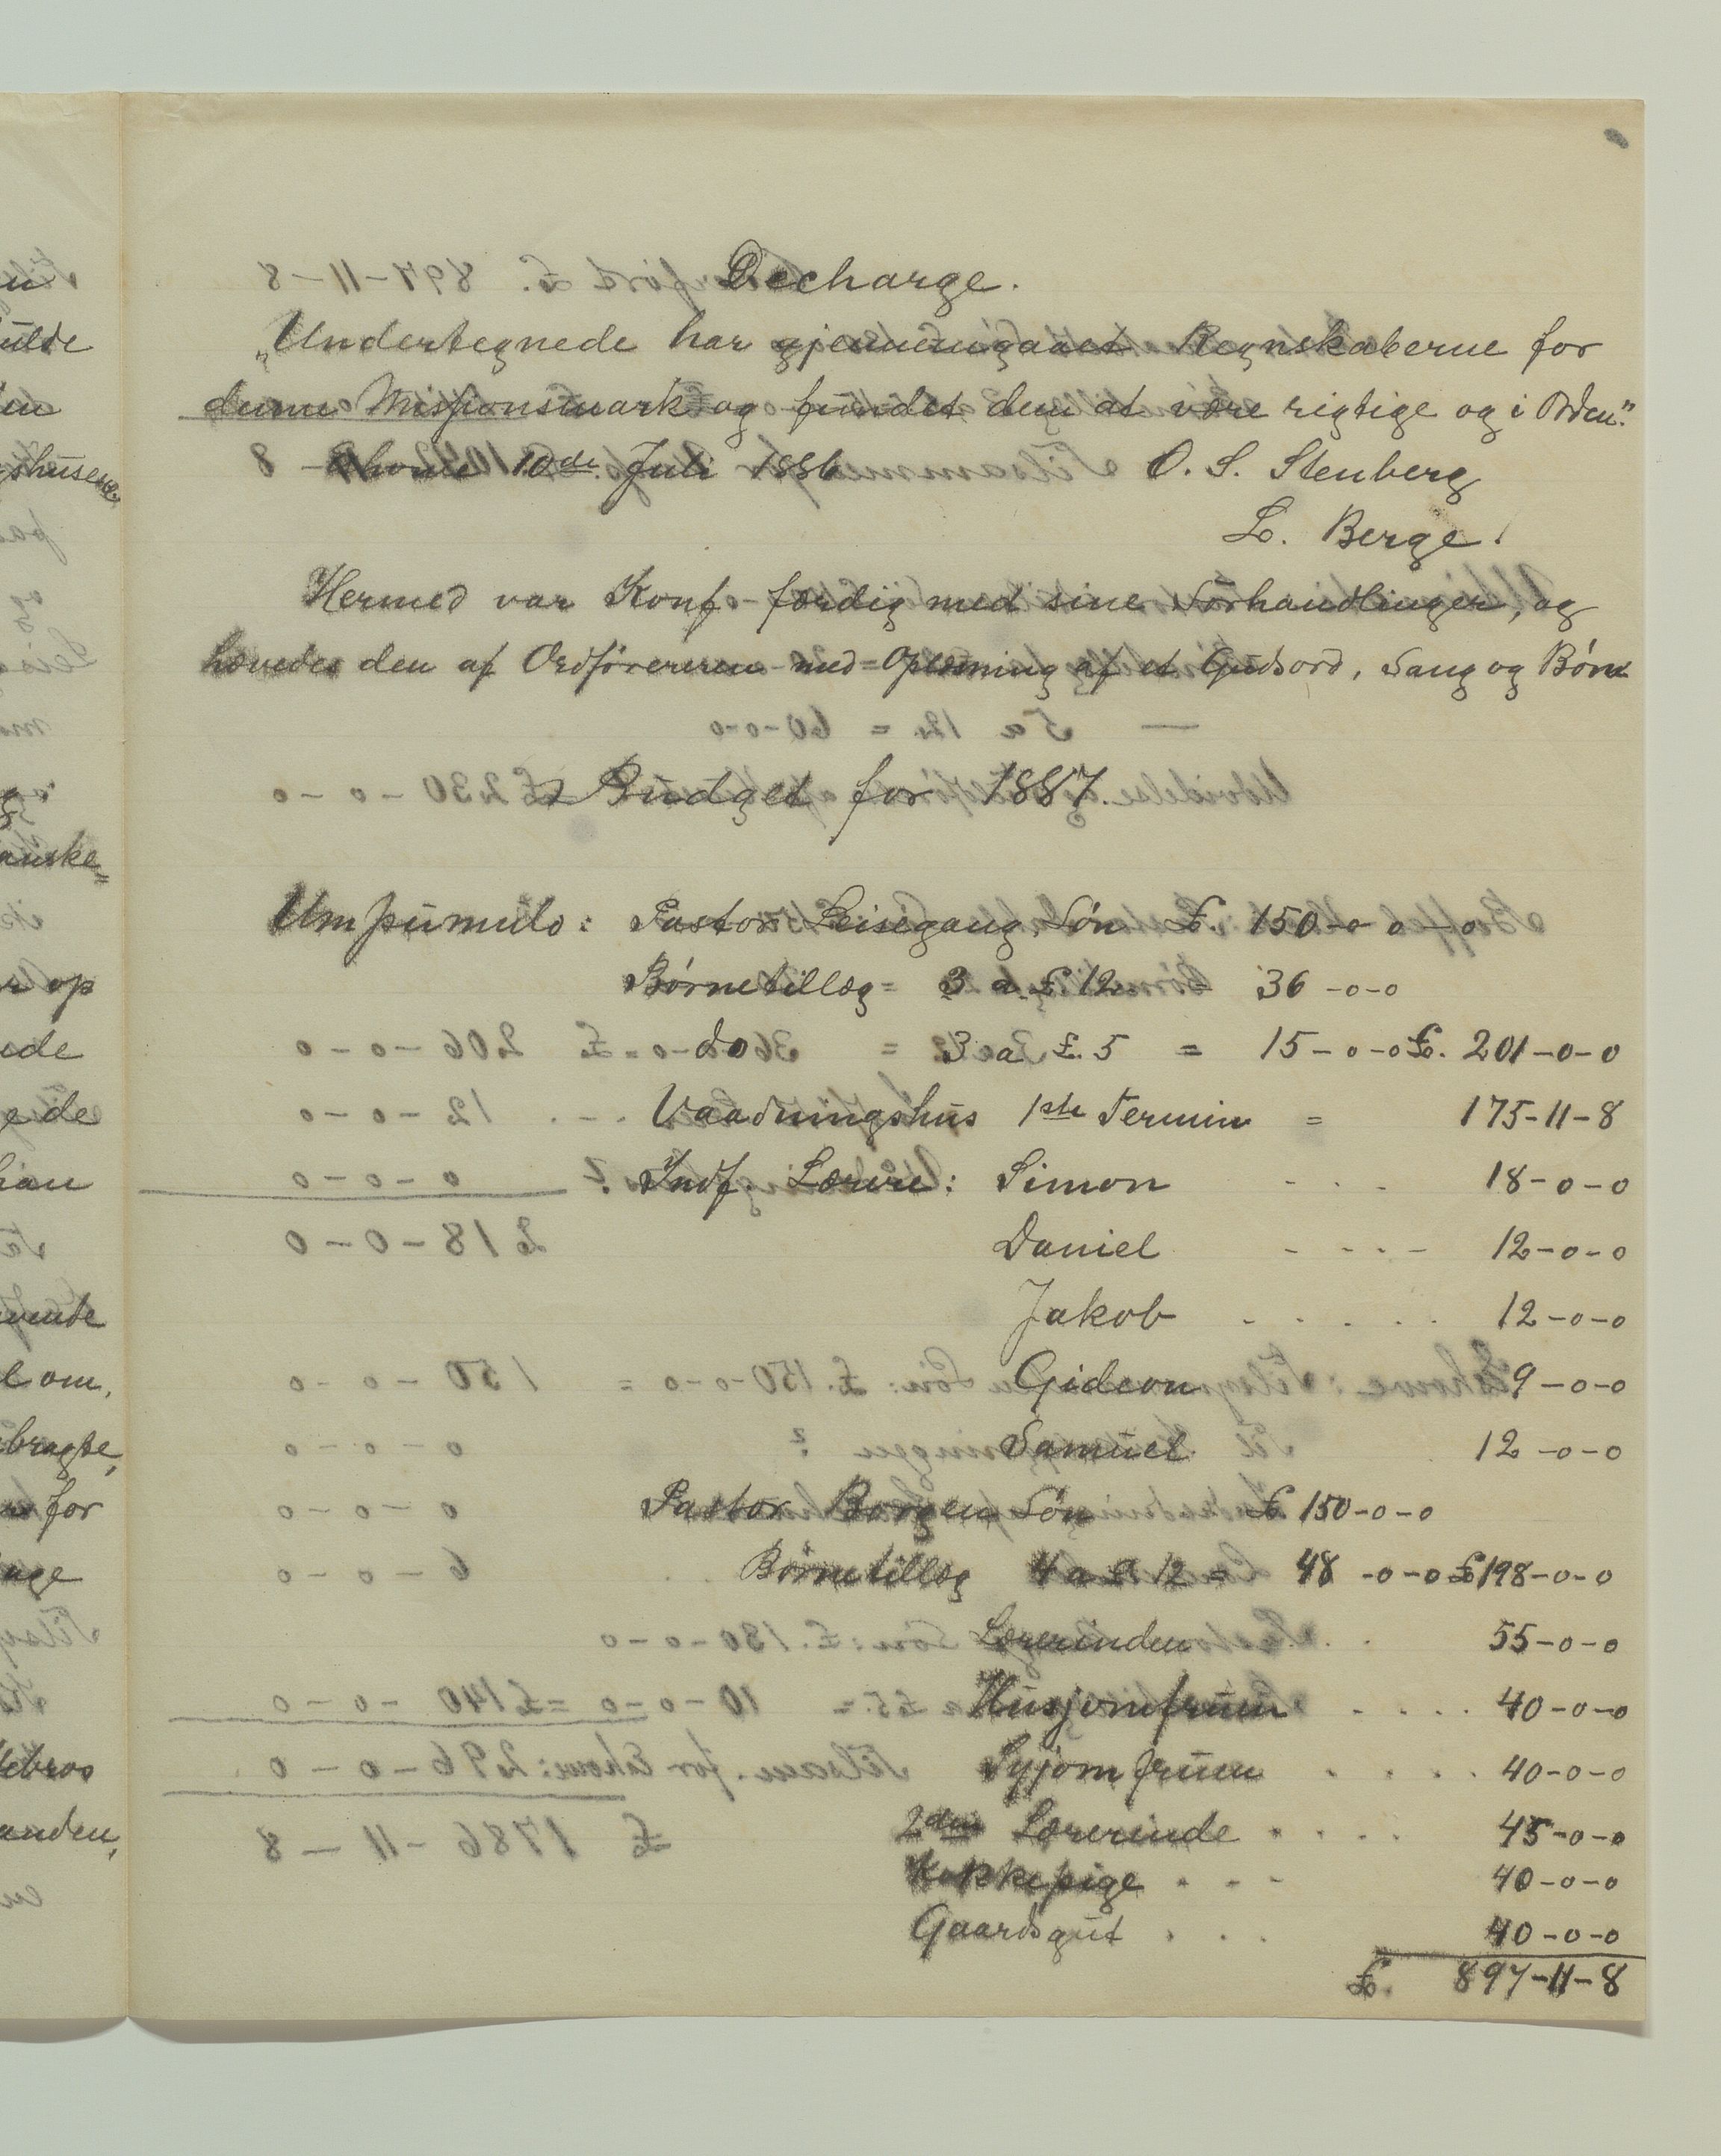 Decharge.
„Undertegnede har gjennemgaaet Regnskaberne for
denne Missionsmark og fundet dem at være rigtige og i Orden."
Ekhowe 10de Juli 1886 O. S. Stenberg
L. Berge.
Hermed var Konf. færdig med sine Forhandlinger, og
hævedes den af Ordføreren med Oplæsning af et Gudsord, Sang og Bøn
Budget for 1887.
Umpumulo: Pastor Leisegang, Løn £. 150-o-o
Børnetillæg = 3 a £ 12 = 36-o-o
do 3 a £. 5 = 15-o-o £. 201-o-o
Vaaningshus 1ste Termin = 175-11-8
Indf. Lærere: Simon - - - 18-o-o
Daniel - - - - 12-o-o
Jakob . . . . . 12-o-o
Gideon 9-o-o
Samuel 12-o-o
Pastor Borgen Løn £ 150-o-o
Børnetillæg 4 a £ 12 = 48-o-o £198-o-o
Lærerinden . . 55-o-o
Husjomfruen . . . . 40-o-o
Syjomfruen . . . . 40-o-o
2den Lærerinde . . . . 45-o-o
Kokkepige . - - 40-o-o
Gaardsgut . . . 40-o-o
£. 897-11-8